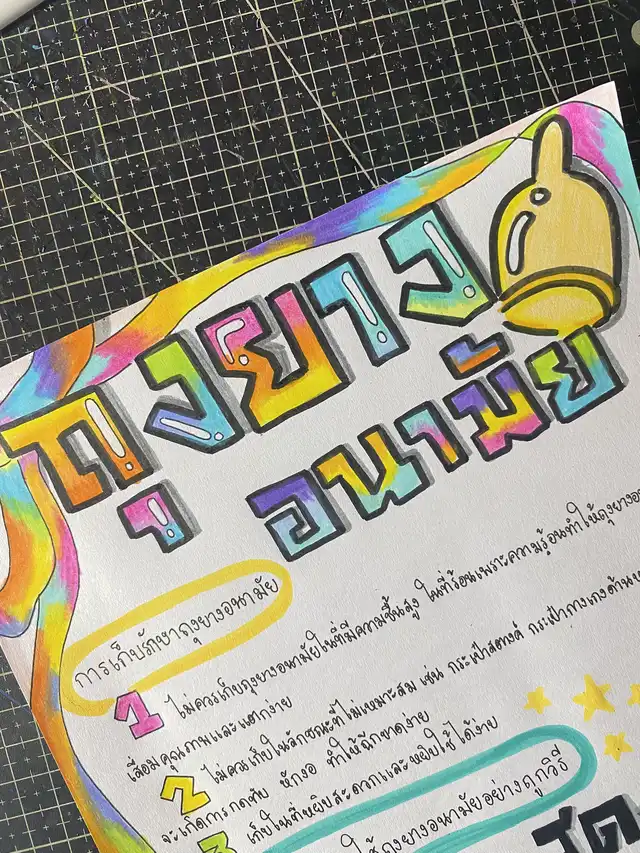 ถุงยาง
อนามัย
การเก็บรักษาถุงยางอนามัย
1 ไม่ควรเก็บถุงยางอนามัยในที่มีความชื้นสูง ในที่ร้อนเพราะความร้อนทำให้ถุงยาง
เสื่อมคุณภาพและแตกง่าย
2 ไม่ควรเก็บในลักษณะที่ไม่เหมาะสม เช่น กระเป๋าสตางค์ กระเป๋ากางเกงด้าน
จะเกิดการกดทับ หักงอ ทำให้ฉีกขาดง่าย
3 เก็บในที่หยิบสะดวกและหยิบใช้ได้ง่าย
ใช้ถุงยางอนามัยอย่างถูกวิธี